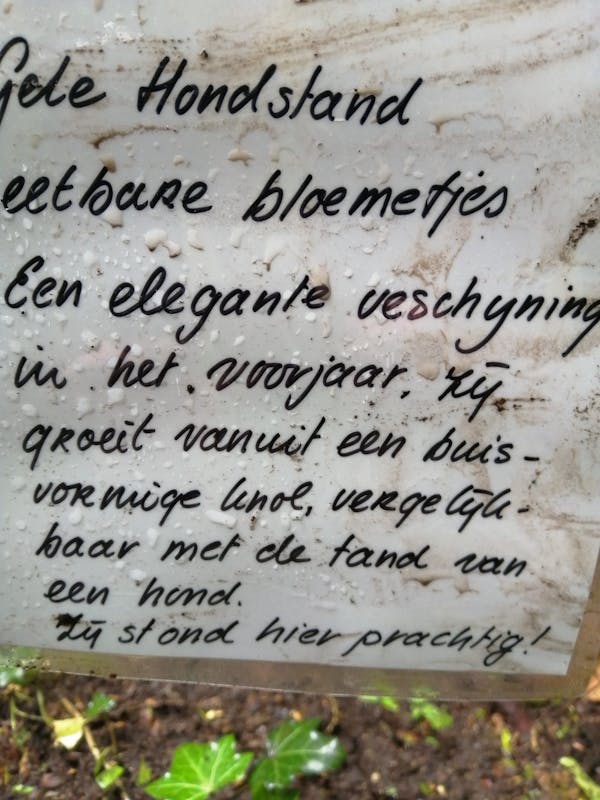 Gele Hondstand
eetbare bloemetjes
Een elegante veschyning
in het voorjaar. Zij
groeit vanuit een buis-
vormige knol, vergelijk-
baar met de tand van
een hond.
Zij stond hier prachtig!